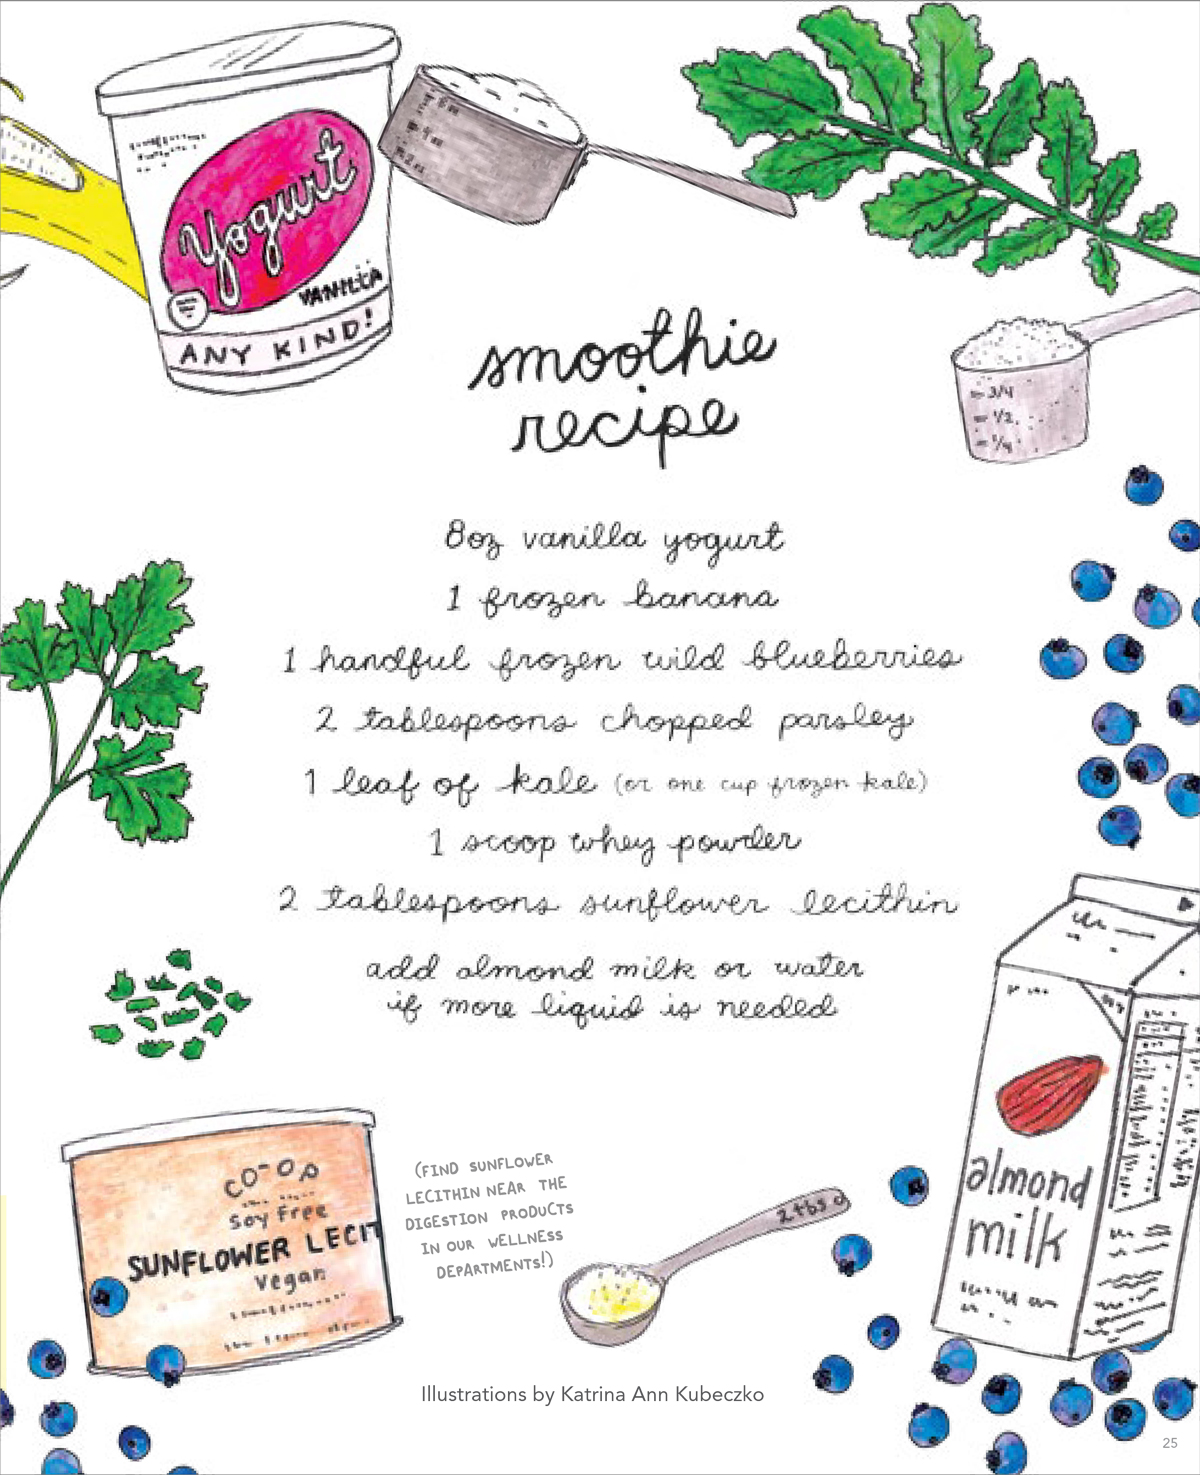 Yogurt
VANILLA
ANY KIND!
3/4
1/2
1/4
smoothie
recipe
8oz vanilla yogurt
1 frozen banana
1 handful frozen wild blueberries
2 tablespoons chopped parsley
1 leaf of kale (or one cup frozen kale)
1 scoop whey powder
2 tablespoons sunflower lecithin
add almond milk or water
if more liquid is needed
CO-OP
Soy Free
SUNFLOWER LECIT
Vegan
(FIND SUNFLOWER
LECITHIN NEAR THE
DIGESTION PRODUCTS
IN OUR WELLNESS
DEPARTMENTS!)
2 tbs
almond
milk
Illustrations by Katrina Ann Kubeczko
25